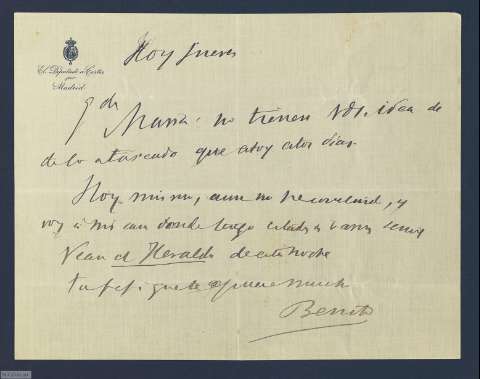 El Diputado a Cortes
por
Madrid
Hoy jueves
Maria: no tienen Vds. idea de
de lo atareado que estoy estos días
Hoy mismo, aun no he comido, y
voy á mi casa donde tengo citados á varios
Vean el Heraldo de esta noche
que te quiere mucho
Benito